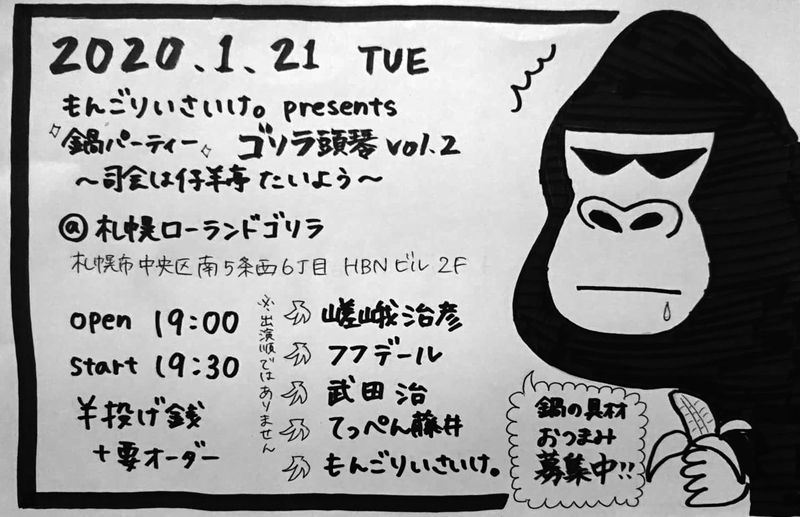 2020.1.21 TUE
もんごりいさいけ。presents
鍋パーティー ゴリラ頭琴 vol.2
～司会は仔羊亭たいよう～
@札幌ローランドゴリラ
札幌市中央区南5条西6丁目 HBNビル 2F
open 19:00
start 19:30
¥投げ銭
+要オーダー
※出演順ではありません
嵯峨治彦
フフデール
武田 治
てっぺん藤井
もんごりいさいけ。
鍋の具材
おつまみ
募集中!!